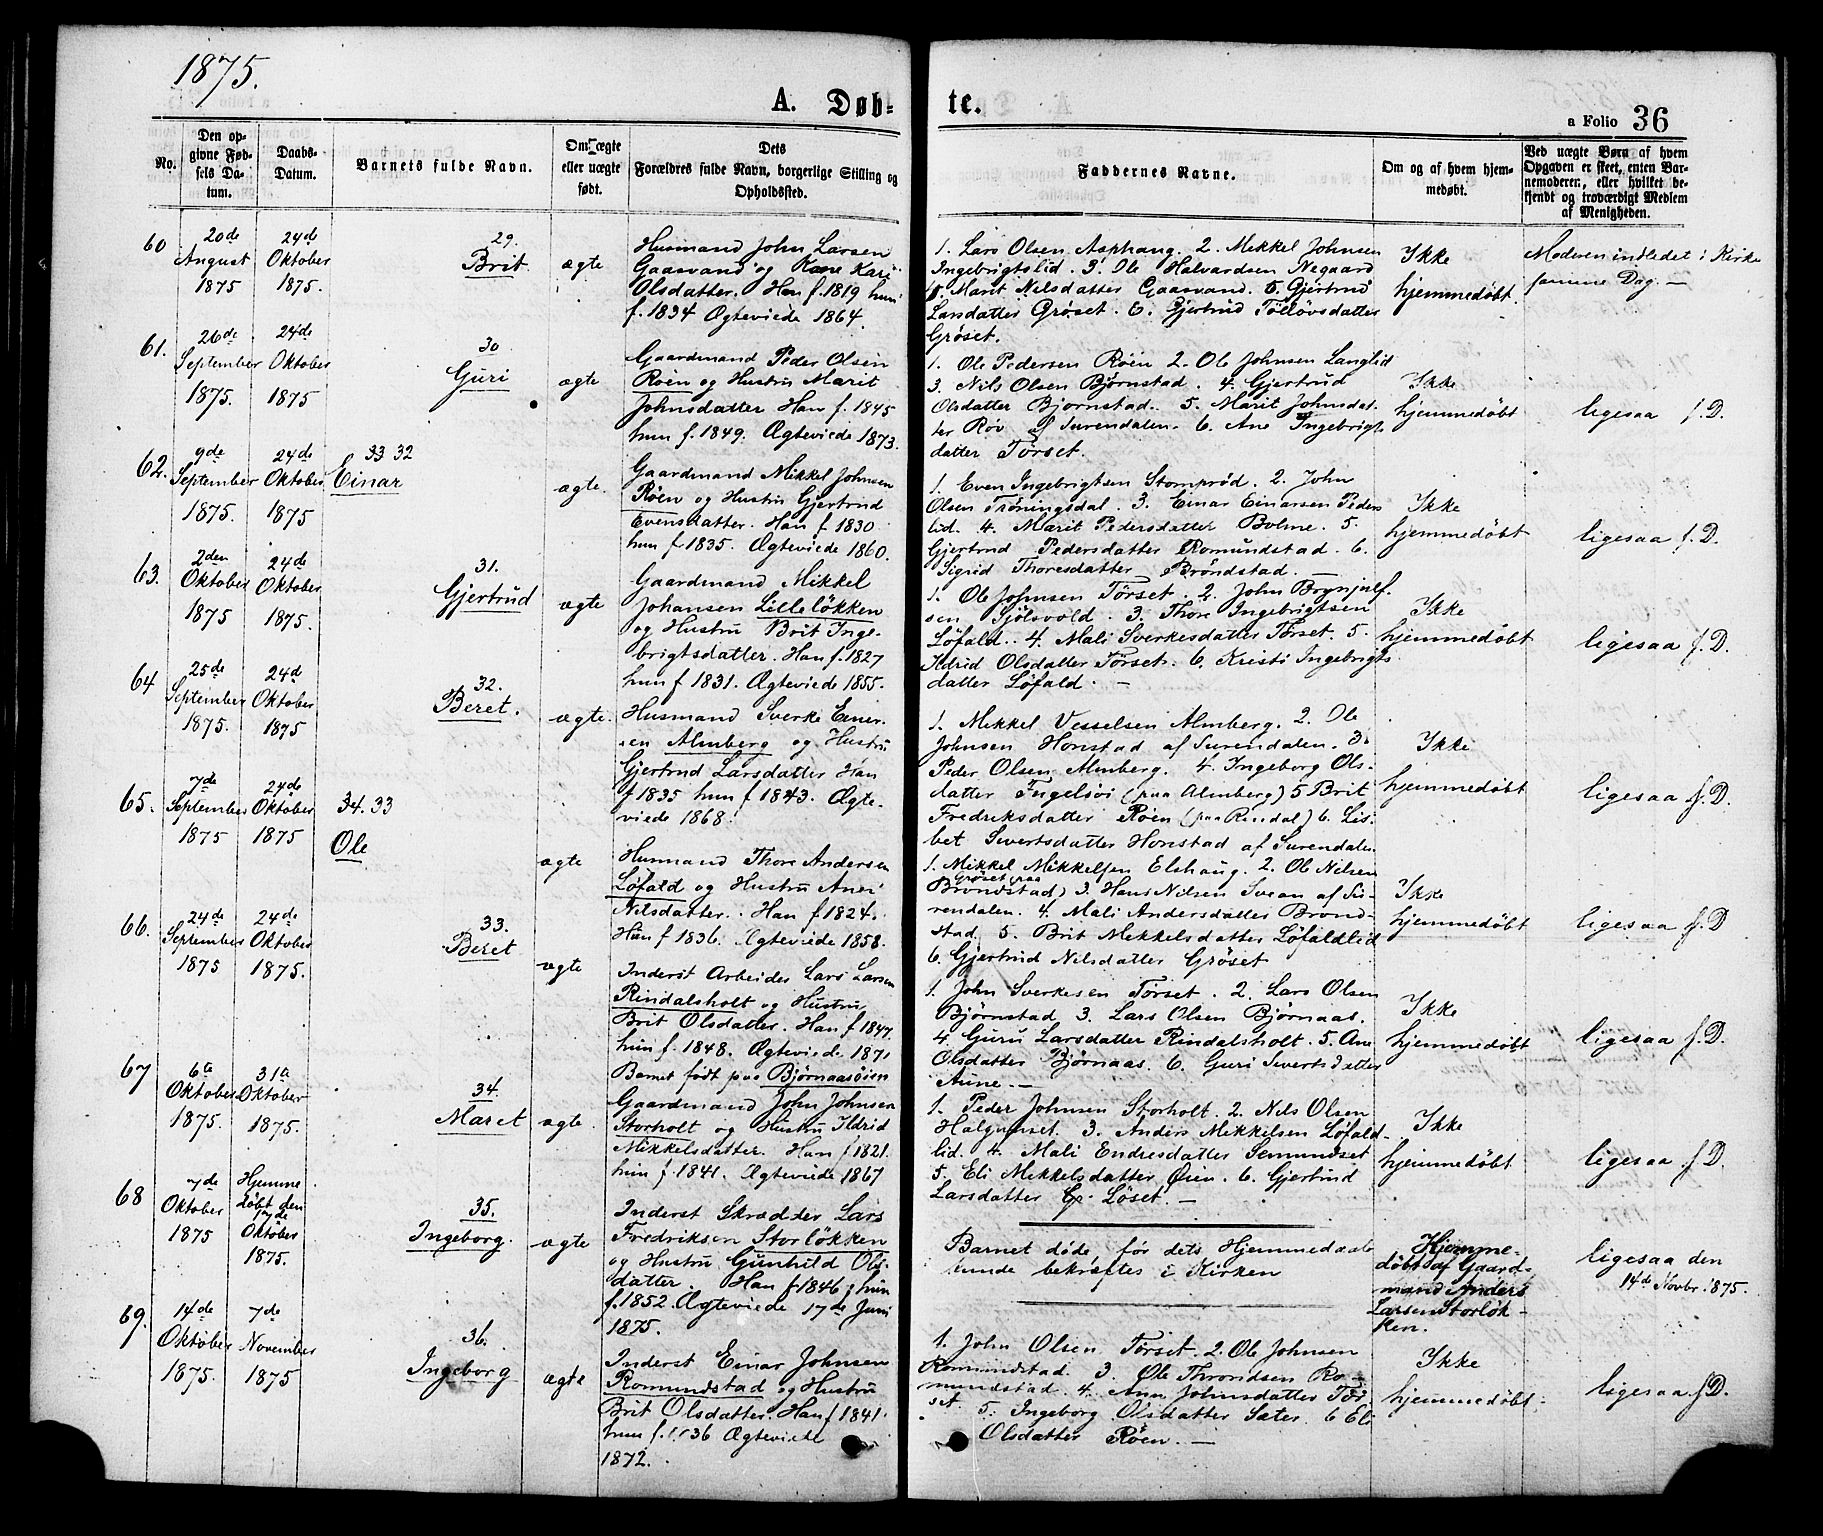 1875.
A. Døb-
te.
a Folio 36
No.
Den op-
givne Fød-
sels Da-
tum.
Daabs-
Datum.
Barnets fulde Navn.
Om ægte
eller uægte
født.
Dets
Forældres fulde Navn, borgerlige Stilling og
Opholdssted.
Faddernes Navne.
Om og af hvem hjem-
medøbt.
Ved uægte Børn af hvem
Opgaven er skeet, enten Bar-
nemoderen, eller hvilket be-
kjendt og troværdigt Medlem
af Menigheden.
60
20de
August
1875
24de
Oktober
1875.
29.
Brit.
ægte
Husmand John Larsen
Gaasvand og Kone Kari
Olsdatter. Han f. 1819 hun
f. 1834 Ægteviede 1864.
1. Lars Olsen Asphaug. 2. Mikkel Johnsen
Ingebrigtslid. 3. Ole Halvardsen Negaard
4. Marit Nilsdatter Gaasvand. 5. Gjertrud
Larsdatter Grøset. 6. Gjertrud Tølløvsdatter
Grøset.
Ikke
hjemmedøbt.
Moderen indledet i Kirke
samme Dag. —
61.
26de
September
1875.
24de
Oktober
1875
30
Guri
ægte
Gaardmand Peder Olsen
Røen og Hustru Marit
Johnsdatter Han f. 1845
hun f. 1849. Ægteviede 1873.
1. Ole Pedersen Røen 2. Ole Johnsen Langlid
3. Nils Olsen Bjørnstad. 4. Gjertrud
Olsdatter Bjørnstad. 5. Marit Johnsdat-
ter Røv af Surendalen. 6. Ane Ingebrigt-
datter Tørset.
Ikke
hjemmedøbt
ligesaa f. D.
62.
9de
September
1875.
24de
Oktober
1875
33 32
Einar
ægte.
Gaardmand Mikkel Johnsen
Røen og Hustru Gjertrud
Evensdatter. Han f. 1830
hun f 1835. Ægteviede 1860.
1. Even Ingebrigtsen Stomprød. 2. John
Olsen Trøningsdal. 3. Einar Einarsen Peders
lid. 4. Marit Pedersdatter Bolme. 5.
Gjertrud Pedersdatter Romundstad. 6.
Sigrid Thoresdatter Brøndstad. —
Ikke
hjemmedøbt
ligesaa f. D.
63.
2den
Oktober
1875
24de
Oktober
1875.
31.
Gjertrud
ægte
Gaardmand Mikkel
Johansen Lilleløkken
og Hustru Brit Inge-
brigtsdatter. Han f. 1827
hun f 1831. Ægteviede 1855.
1. Ole Johnsen Tørset. 2. John Brynjulf-
sen Sjølsvold. 3. Thore Ingebrigtsen
Løfald. 4. Mali Sverkesdatter Tørset. 5.
Ildrid Olsdatter Tørset. 6. Kristi Ingebrigts
datter Løfald. —
Ikke
hjemmedøbt
ligesaa f. D.
64
25de
September
1875.
24d
Oktober
1875
32.
Beret.
ægte.
Husmand Sverke Einar-
sen Almberg og Hustru
Gjertrud Larsdatter Han
f 1835 hun f 1843. Ægte-
viede 1868.
1. Mikkel Vesselsen Almberg. 2. Ole
Johnsen Honstad af Surendalen. 3.
Peder Olsen Almberg. 4. Ingeborg Ols-
datter Ingelsøi (paa Almberg) 5 Brit
Fredriksdatter Røen (paa Rindal) 6. Lis-
bet Sivertsdatter Honstad af Surendalen
Ikke
hjemmedøbt
ligesaa f. D.
65.
7de
September
1875
24de
Oktober
1875
34. 33
Ole
ægte
Husmand Thore Andersen
Løfald og Hustru Ane
Nilsdatter. Han f 1824.
Hun f 1836. Ægteviede 1858.
1. Mikkel Mikkelsen Elshaug. 2. Ole Nilsen
Grøset paa
Brøndstad) 3. Hans Nilsen Svean af Su-
rendalen. 4. Mali Andersdatter Brønd-
stad. 5. Brit Mikkelsdatter Løfaldlid
6. Gjertrud Nilsdatter Grøset
Ikke
hjemmedøbt
ligesaa f. D
66.
24de
September
1875
24de
Oktober
1875.
33.
Beret
ægte
Inderst Arbeider Lars Larsen
Rindalsholt og Hustru
Brit Olsdatter. Han f 1847
hun f. 1848. Ægteviede 1871
Barnet født paa Bjørnaasøien
1. John Sverkesen Tørset. 2. Lars Olsen
Bjørnstad 3. Lars Olsen Bjørnaas.
4 Guru Larsdatter Rindalsholt. 5. Ane
Olsdatter Bjørnaas. 6. Guri Sivertsdatter
Aune. —
Ikke
hjemmedøbt
ligesaa f. D.
67
6te
Oktober
1875.
31te
Oktober
1875.
34.
Maret
ægte.
Gaardmand John Johnsen
Storholt og Hustru Ildrid
Mikkelsdatter. Han f 1821.
hun f. 1841. Ægteviede 1867
1. Peder Johnsen Storholt. 2. Nils Olsen
Halgunset. 3. Anders Mikkelsen Løfald-
lid. 4. Mali Endresdatter Semundset
5. Eli Mikkelsdatter Øien. 6. Gjertrud
Larsdatter Løset. —
Ikke
hjemmedøbt
ligesaa f. D.
68
7de
Oktober
1875
Hjemme
døbt den
17de
Oktober
1875.
35.
Ingeborg.
ægte
Inderst Skrædder Lars
Fredriksen Storløkken
og Hustru Gunhild Ols-
datter. Han f. 1846 ; hun
f. 1852. Ægteviede 17de Juni
1875.
Barnet døde, før dets Hjemmedaab
kunde bekræftes i Kirken
Hjemme-
døbt af Gaard-
mand Anders
Larsen Storløk-
ken.
ligesaa den
14de Novbr. 1875.
69.
14de
Oktober
1875.
7de
November
1875
36.
Ingeborg
ægte
Inderst Einar Johnsen
Romundstad og Hustru
Brit Olsdatter. Han f 1841.
hun f. 1836 Ægteviede
1872.
1. John Olsen Tørset. 2. Ole Johnsen
Romundstad. 3. Ole Throndsen Ro-
mundstad. 4. Ane Johnsdatter Tør-
set. 5. Ingeborg Olsdatter Sæter. 6 Eli
Olsdatter Røen. —
Ikke
hjemmedøbt.
ligesaa. f. D.